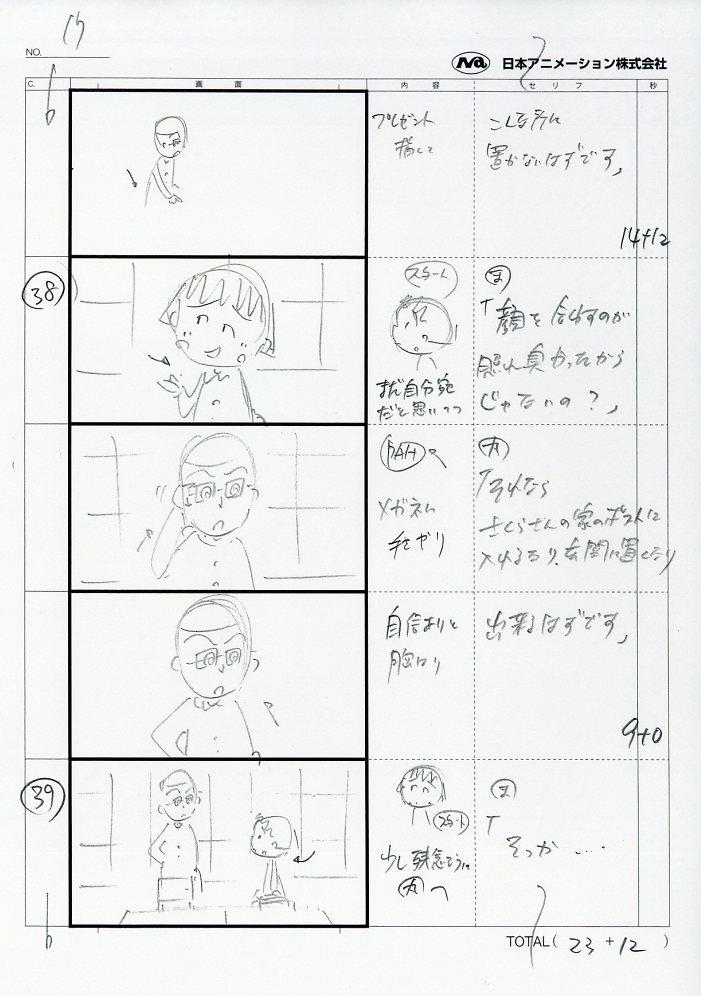 NO. 17
Na 日本アニメーション株式会社
C. 画面 内容 セリフ 秒
プレゼント
指して
こんな所に
置かないはずです」
14+12
38
スタート
まだ自分宛
だと思いつつ
ま
「顔を合わすのが
照れ臭かったから
じゃないの?」
PAN
メガネに
手をやり
丸
「それなら
さくらさんの家のポストに
入れるなり、玄関に置くなり
自信ありと
胸はり
出来るはずです」
9+0
39
スタート
少し残念そうに
丸へ
ま
「
そっか....
TOTAL( 23 + 12 )